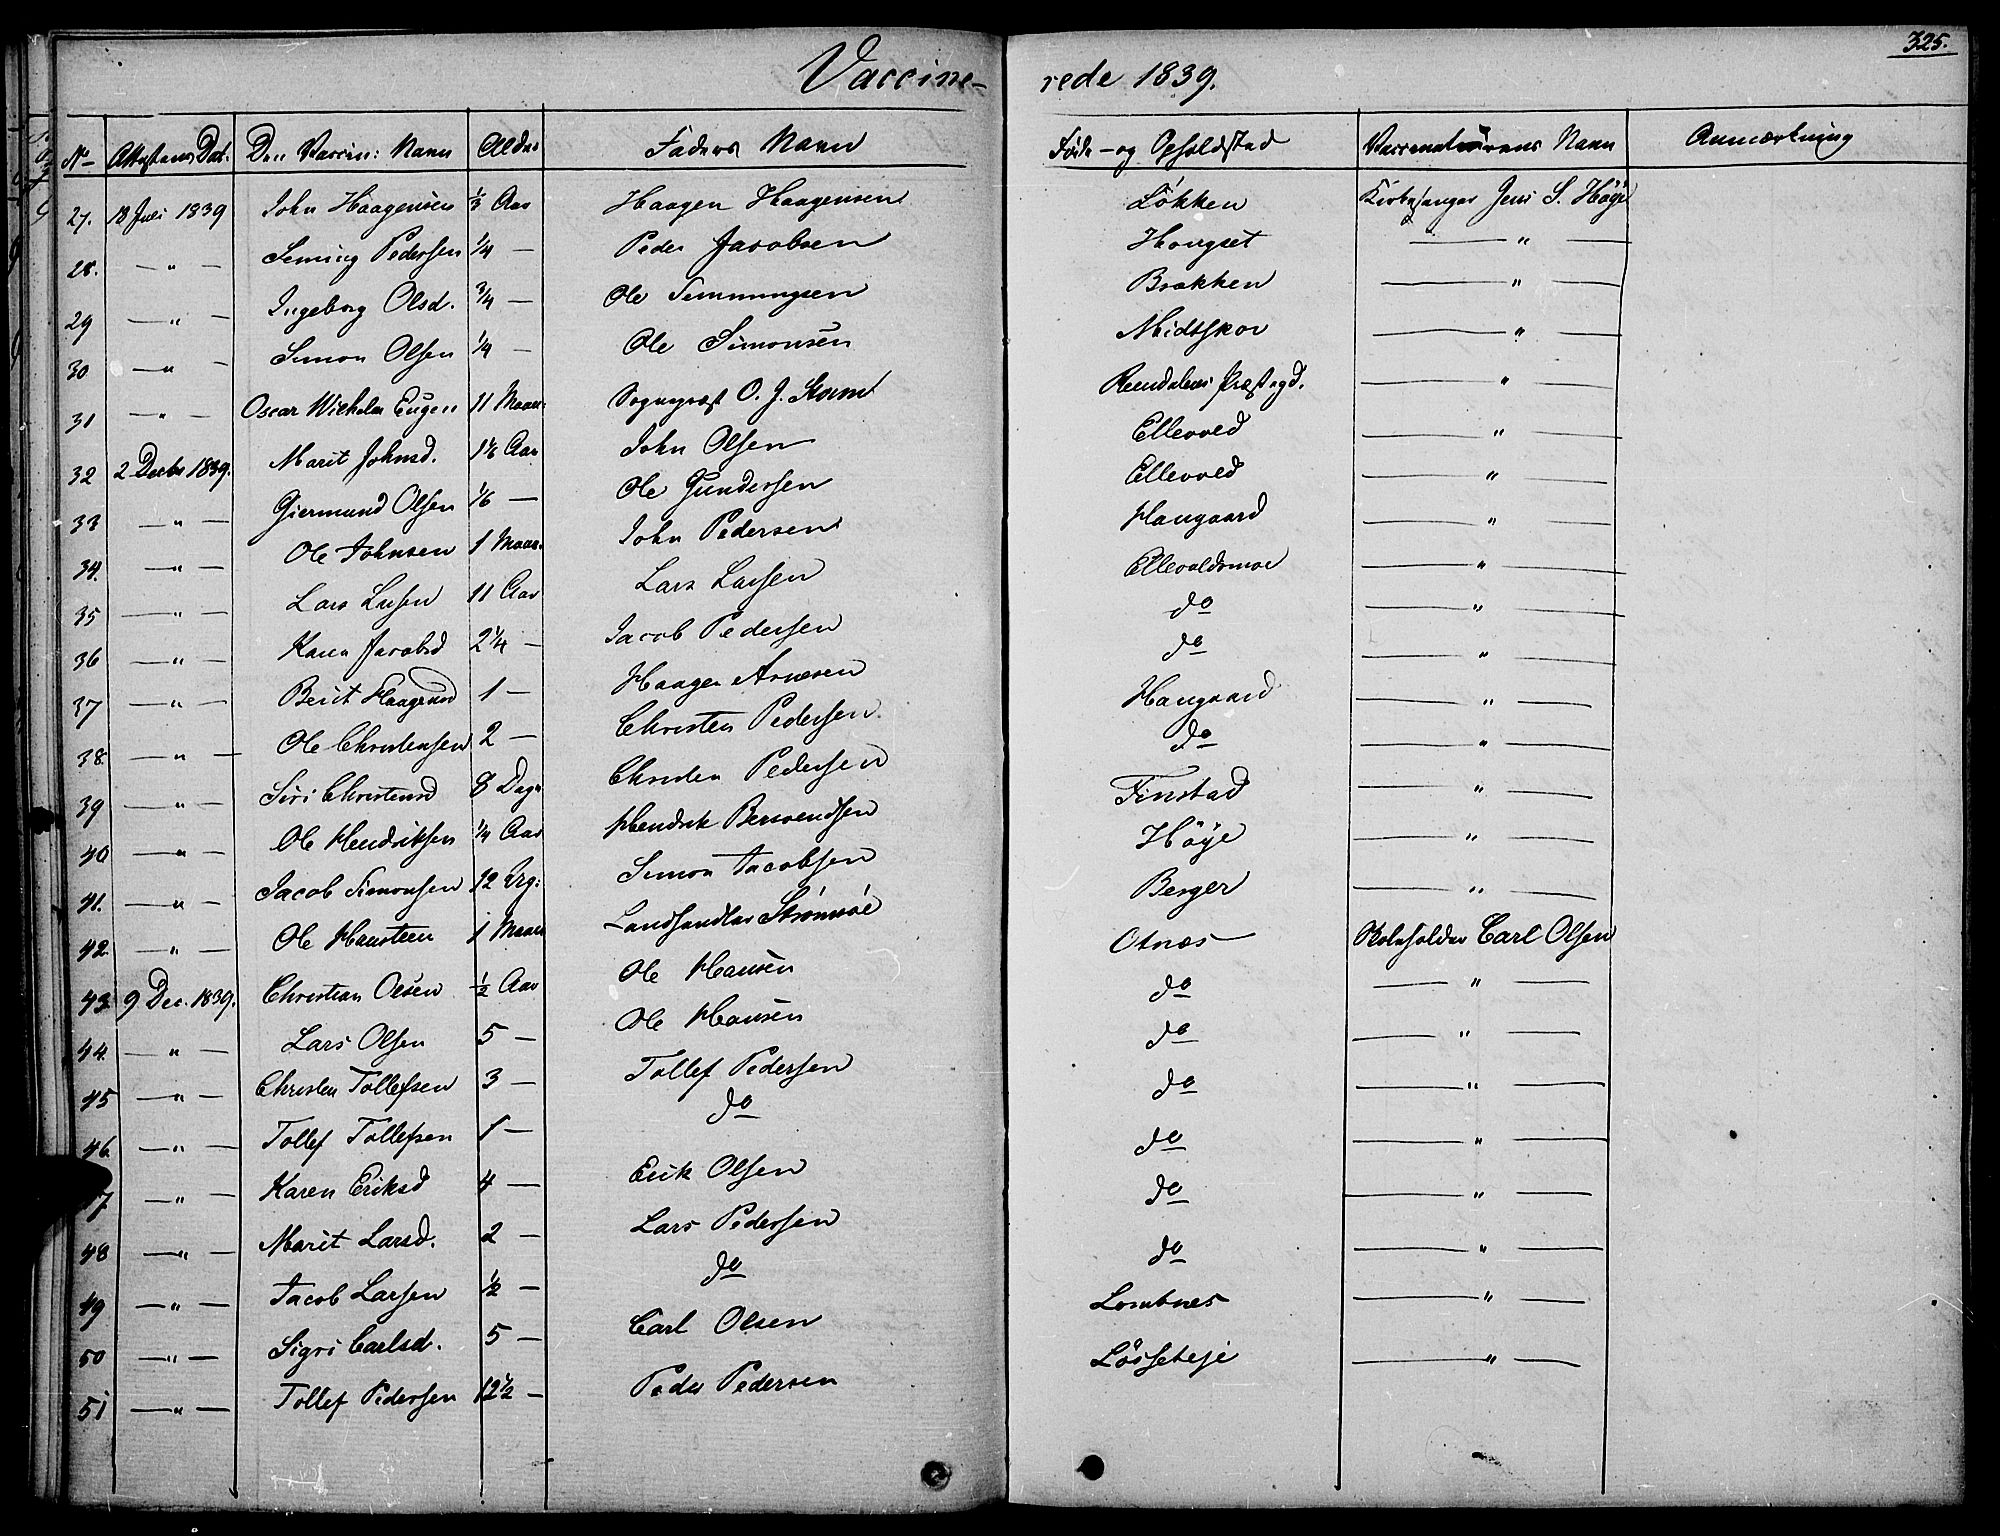 325.
Vaccine- rede 1839.
No Attestens Dat: Den Vaccin: Navn Alder Faders Navn Føde- og Opholdsted Vaccinateurens Navn Anmærkning
27. 18 Juli 1839 John Haagensen 1/3 Aar Haagen Haagensen Løkken Kirkesanger Jens S. Høye
28. — " — Seming Pedersen 1/4 — Peder Jacobsen Hongset — " —
29 — " — Ingeborg Olsd. 3/4 — Ole Simmingsen Brækken — " —
30 — " — Simon Olsen 1/4 — Ole Simonsen Midtskov — " —
31 — " — Oscar Wilhelm Eugen 11 Maan: Sognepræst O. J. Storm Reendalens Præstegd. — " —
32 2 Decbr 1839. Marit Johnsd. 1 1/6 Aar John Olsen Ellevold — " —
33 — " — Giermund Olsen 1/6 — Ole Gundersen Ellevold — " —
34. — " — Ole Johnsen 1 Maan. John Pedersen Haugaard — " —
35 — " — Lars Larsen 11 Aar Lars Larsen Ellevoldsmoe — " —
36 — " — Karen Jacobsd 2 1/4 — Jacob Pedersen do — " —
37 — " — Berit Haagensd 1 — Haagen Arnesen do — " —
38. — " — Ole Christensen 2 — Christen Pedersen. Haugaard — " —
39 — " — Siri Christensd 8 Dage Christen Pedersen do — " —
40 — " — Ole Hendriksen 1/4 Aar Hendrik Bersvendsen Finstad — " —
41. — " — Jacob Simonsen 12 Ug: Simon Jacobsen Høye — " —
42 — " — Ole Hansteen 1 Maan Landhandler Strømsøe Berger — " —
43 9 Dec. 1839. Christian Olsen 1/2 Aar Ole Hansen Otnæs Skoleholder Carl Olsen
44. — " — Lars Olsen 5 — Ole Hansen do — " —
45 — " — Christen Tollefsen 3 — Tollef Pedersen do — " —
46. — " — Tollef Tollefsen 1 — do do — " —
47 — " — Karen Eriksd 4 — Erik Olsen do — " —
48 — " — Marit Larsd. 2 — Lars Pedersen do — " —
49 — " — Jacob Larsen 1/2 — do do — " —
50 — " — Sigri Carlsd. 5 — Carl Olsen Lombnes — " —
51 — " — Tollef Pedersen 12 1/2 — Peder Pedersen Løsseteje — " —